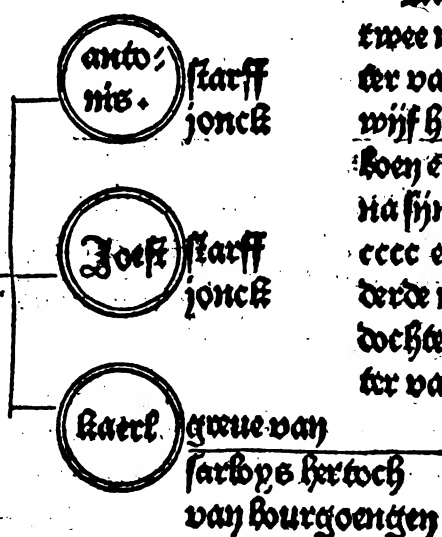 anto⸗
nis.
starff
jonck
Joest
starff
jonck
kaerl
greue van
sarloys hertoch
van bourgoengen
twee
ter va
wijf h
cccc e
derde
dochte
ter va